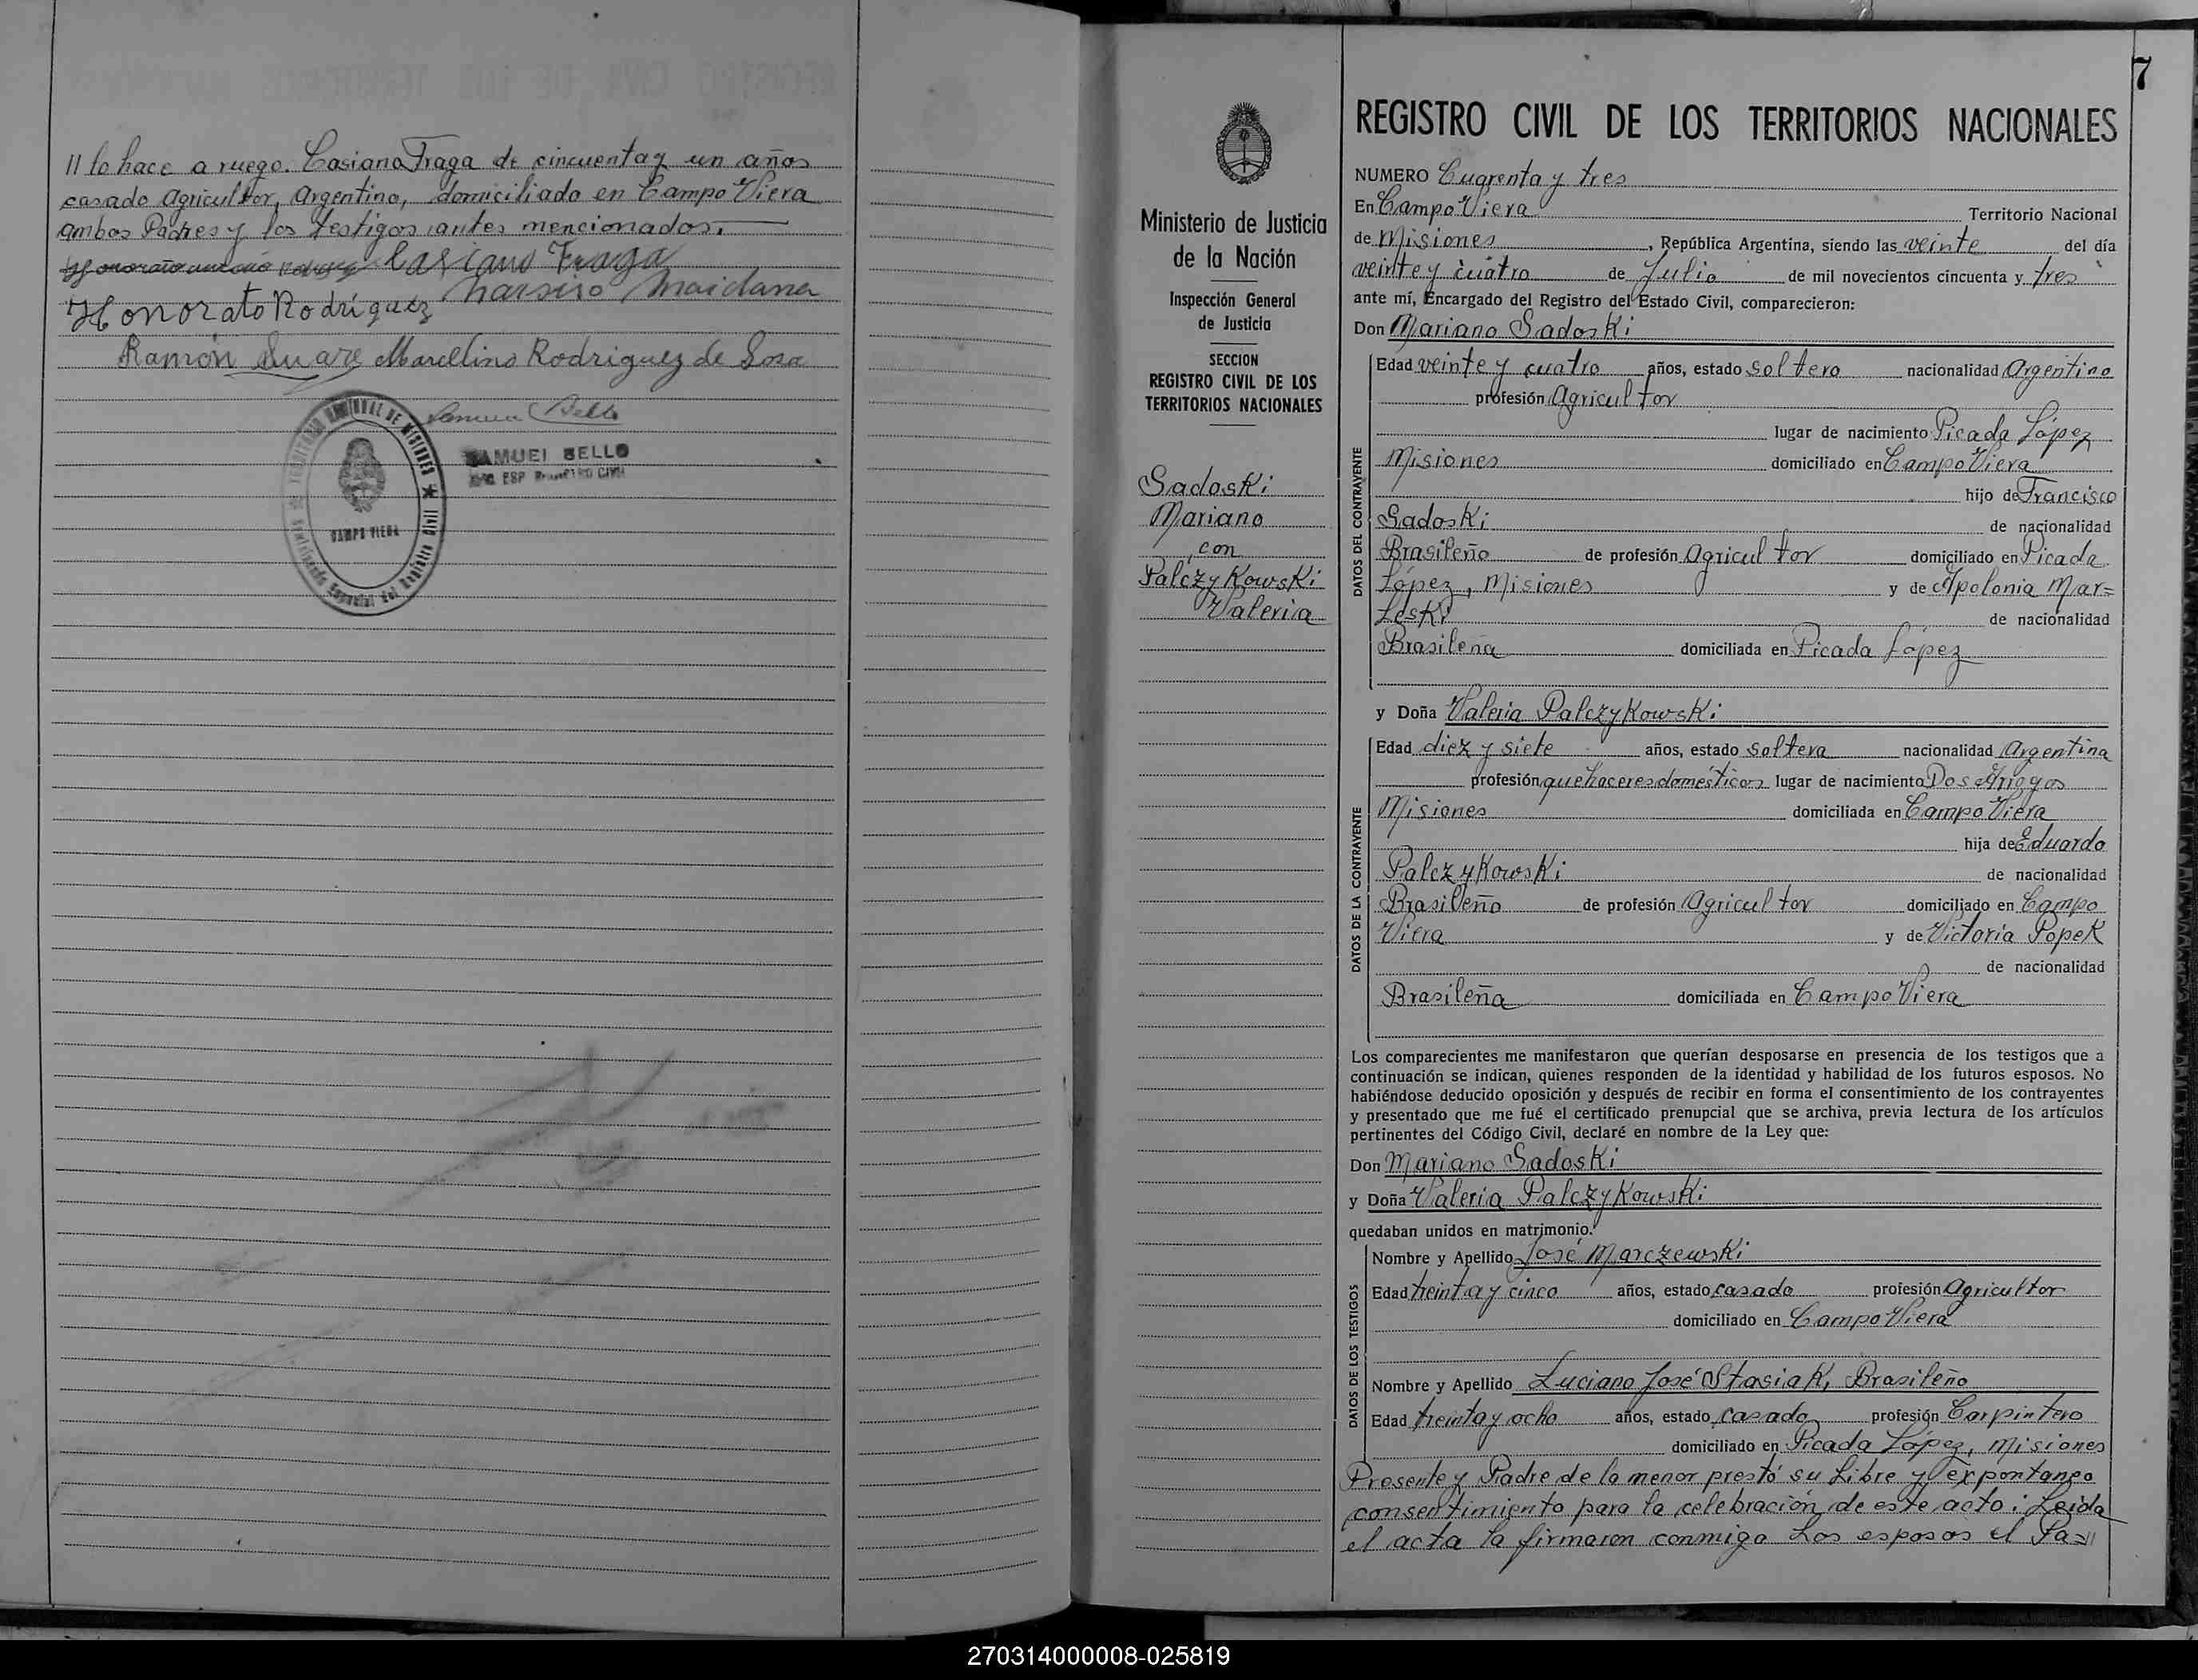 // lo hace a ruego. Casiano Fraga de cincuenta y un años
casado Agricultor, Argentino, domiciliado en Campo Viera
ambos Padres y los testigos antes mencionados.
Casiano Fraga
Honorato Rodríguez Narsiso Maidana
Ramón Suarez Marcelino Rodriguez de Sosa
Samuel Bello
SAMUEL BELLO
ESP REGISTRO CIVIL
NACIONAL DE MISIONES
CAMPO VIERA
Registro Civil
7
Ministerio de Justicia
de la Nación
Inspección General
de Justicia
SECCION
REGISTRO CIVIL DE LOS
TERRITORIOS NACIONALES
Sadoski
Mariano
con
Palczykowski
Valeria
REGISTRO CIVIL DE LOS TERRITORIOS NACIONALES
NUMERO Cuarenta y tres
En Campo Viera Territorio Nacional
de Misiones, República Argentina, siendo las veinte del día
veinte y cuatro de Julio de mil novecientos cincuenta y tres
ante mí, Encargado del Registro del Estado Civil, comparecieron:
Don Mariano Sadoski
DATOS DEL CONTRAYENTE
Edad veinte y cuatro años, estado soltero nacionalidad Argentino
profesión Agricultor
lugar de nacimiento Picada López
Misiones domiciliado en Campo Viera
hijo de Francisco
Sadoski de nacionalidad
Brasileño de profesión Agricultor domiciliado en Picada
López, Misiones y de Apolonia Mar=
leski de nacionalidad
Brasileña domiciliada en Picada López
y Doña Valeria Palczykowski
DATOS DE LA CONTRAYENTE
Edad diez y siete años, estado soltera nacionalidad Argentina
profesión quehaceres domésticos lugar de nacimiento Dos Arroyos
Misiones domiciliada en Campo Viera
hija de Eduardo
Palczykowski de nacionalidad
Brasileño de profesión Agricultor domiciliado en Campo
Viera y de Victoria Popek
de nacionalidad
Brasileña domiciliada en Campo Viera
Los comparecientes me manifestaron que querían desposarse en presencia de los testigos que a
continuación se indican, quienes responden de la identidad y habilidad de los futuros esposos. No
habiéndose deducido oposición y después de recibir en forma el consentimiento de los contrayentes
y presentado que me fué el certificado prenupcial que se archiva, previa lectura de los artículos
pertinentes del Código Civil, declaré en nombre de la Ley que:
Don Mariano Sadoski
y Doña Valeria Palczykowski
quedaban unidos en matrimonio.
DATOS DE LOS TESTIGOS
Nombre y Apellido José Marczewski
Edad treinta y cinco años, estado casado profesión Agricultor
domiciliado en Campo Viera
Nombre y Apellido Luciano José Stasiak, Brasileño
Edad treinta y ocho años, estado casado profesión Carpintero
domiciliado en Picada López, Misiones
Presente y Padre de la menor prestó su libre y expontaneo
consentimiento para la celebración de este acto: Leida
el acta la firmaron conmigo los esposos el Pa=//
270314000008-025819